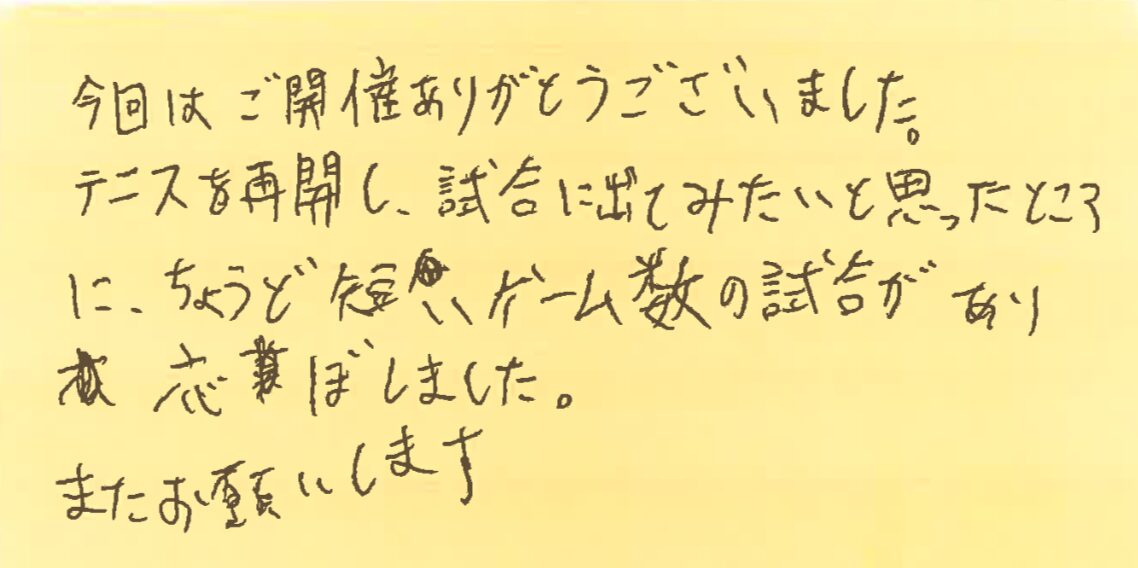 今回はご開催ありがとうございました。
テニスを再開し、試合に出てみたいと思ったところ
に、ちょうど短いゲーム数の試合があり
応ぼしました。
またお願いします